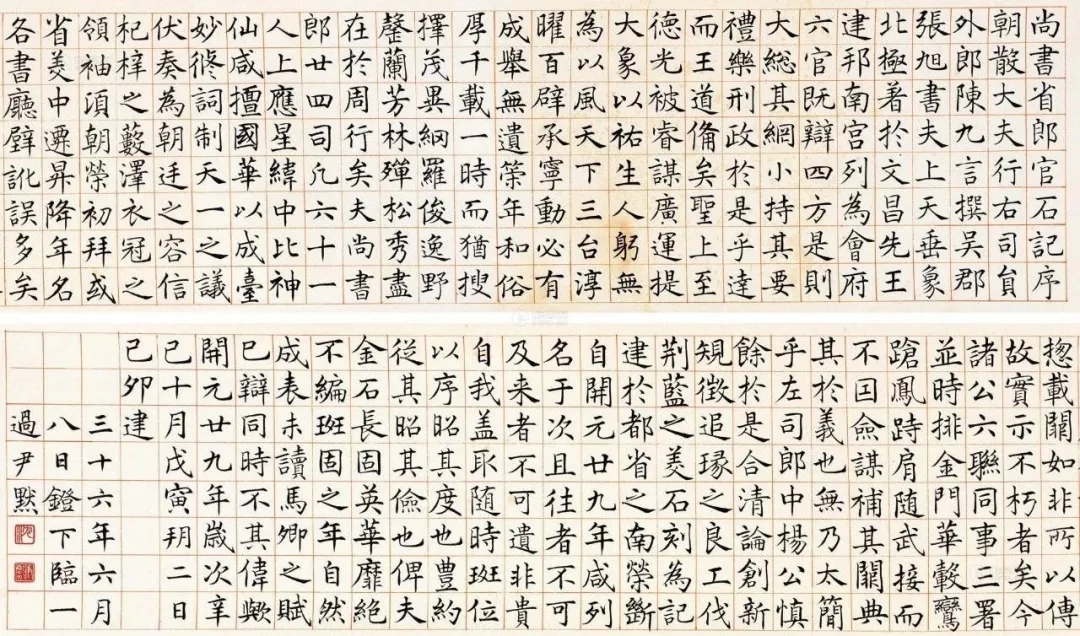 尚書省郎官石記序
朝散大夫行右司貟
外郎陳九言撰吳郡
張旭書夫上天垂象
北極著於文昌先王
建邦南宮列為會府
六官既辯四方是則
大總其綱小持其要
禮樂刑政於是乎達
而王道俻矣聖上至
德光被睿謀廣運提
大象以祐生人躬無
為以風天下三台淳
曜百辟承寧動必有
成舉無遺策年和俗
厚千載一時而猶搜
擇茂異網羅俊逸野
馨蘭芳林殫松秀盡
在於周行矣夫尚書
郎廿四司凡六十一
人上應星緯中比神
仙咸擅國華以成臺
妙脩詞制天一之議
伏奏為朝廷之容信
杞梓之藪澤衣冠之
領袖湏朝榮初拜或
省美中遷昇降年名
各書廳壁訛誤多矣
揔載闕如非所以傳
故實示不朽者矣今
諸公六聯同事三署
並時排金門華轂鸞
蹌鳳跱肩随武接而
不囙僉謀補其闕典
其於義也無乃太簡
乎左司郎中楊公慎
餘於是合清論創新
規徵追琢之良工伐
荆藍之美石刻為記
建於都省之南榮斷
自開元廿九年咸列
名于次且往者不可
及来者不可遺非貴
自我盖取随時班位
以序昭其度也豊約
從其昭其儉也俾夫
金石長固英華靡絕
不編班固之年自然
成表未讀馬卿之賦
已辯同時不其偉歟
開元廿九年歲次辛
巳十月戊寅朔二日
己卯建
三十六年六月
八日鐙下臨一
過尹默